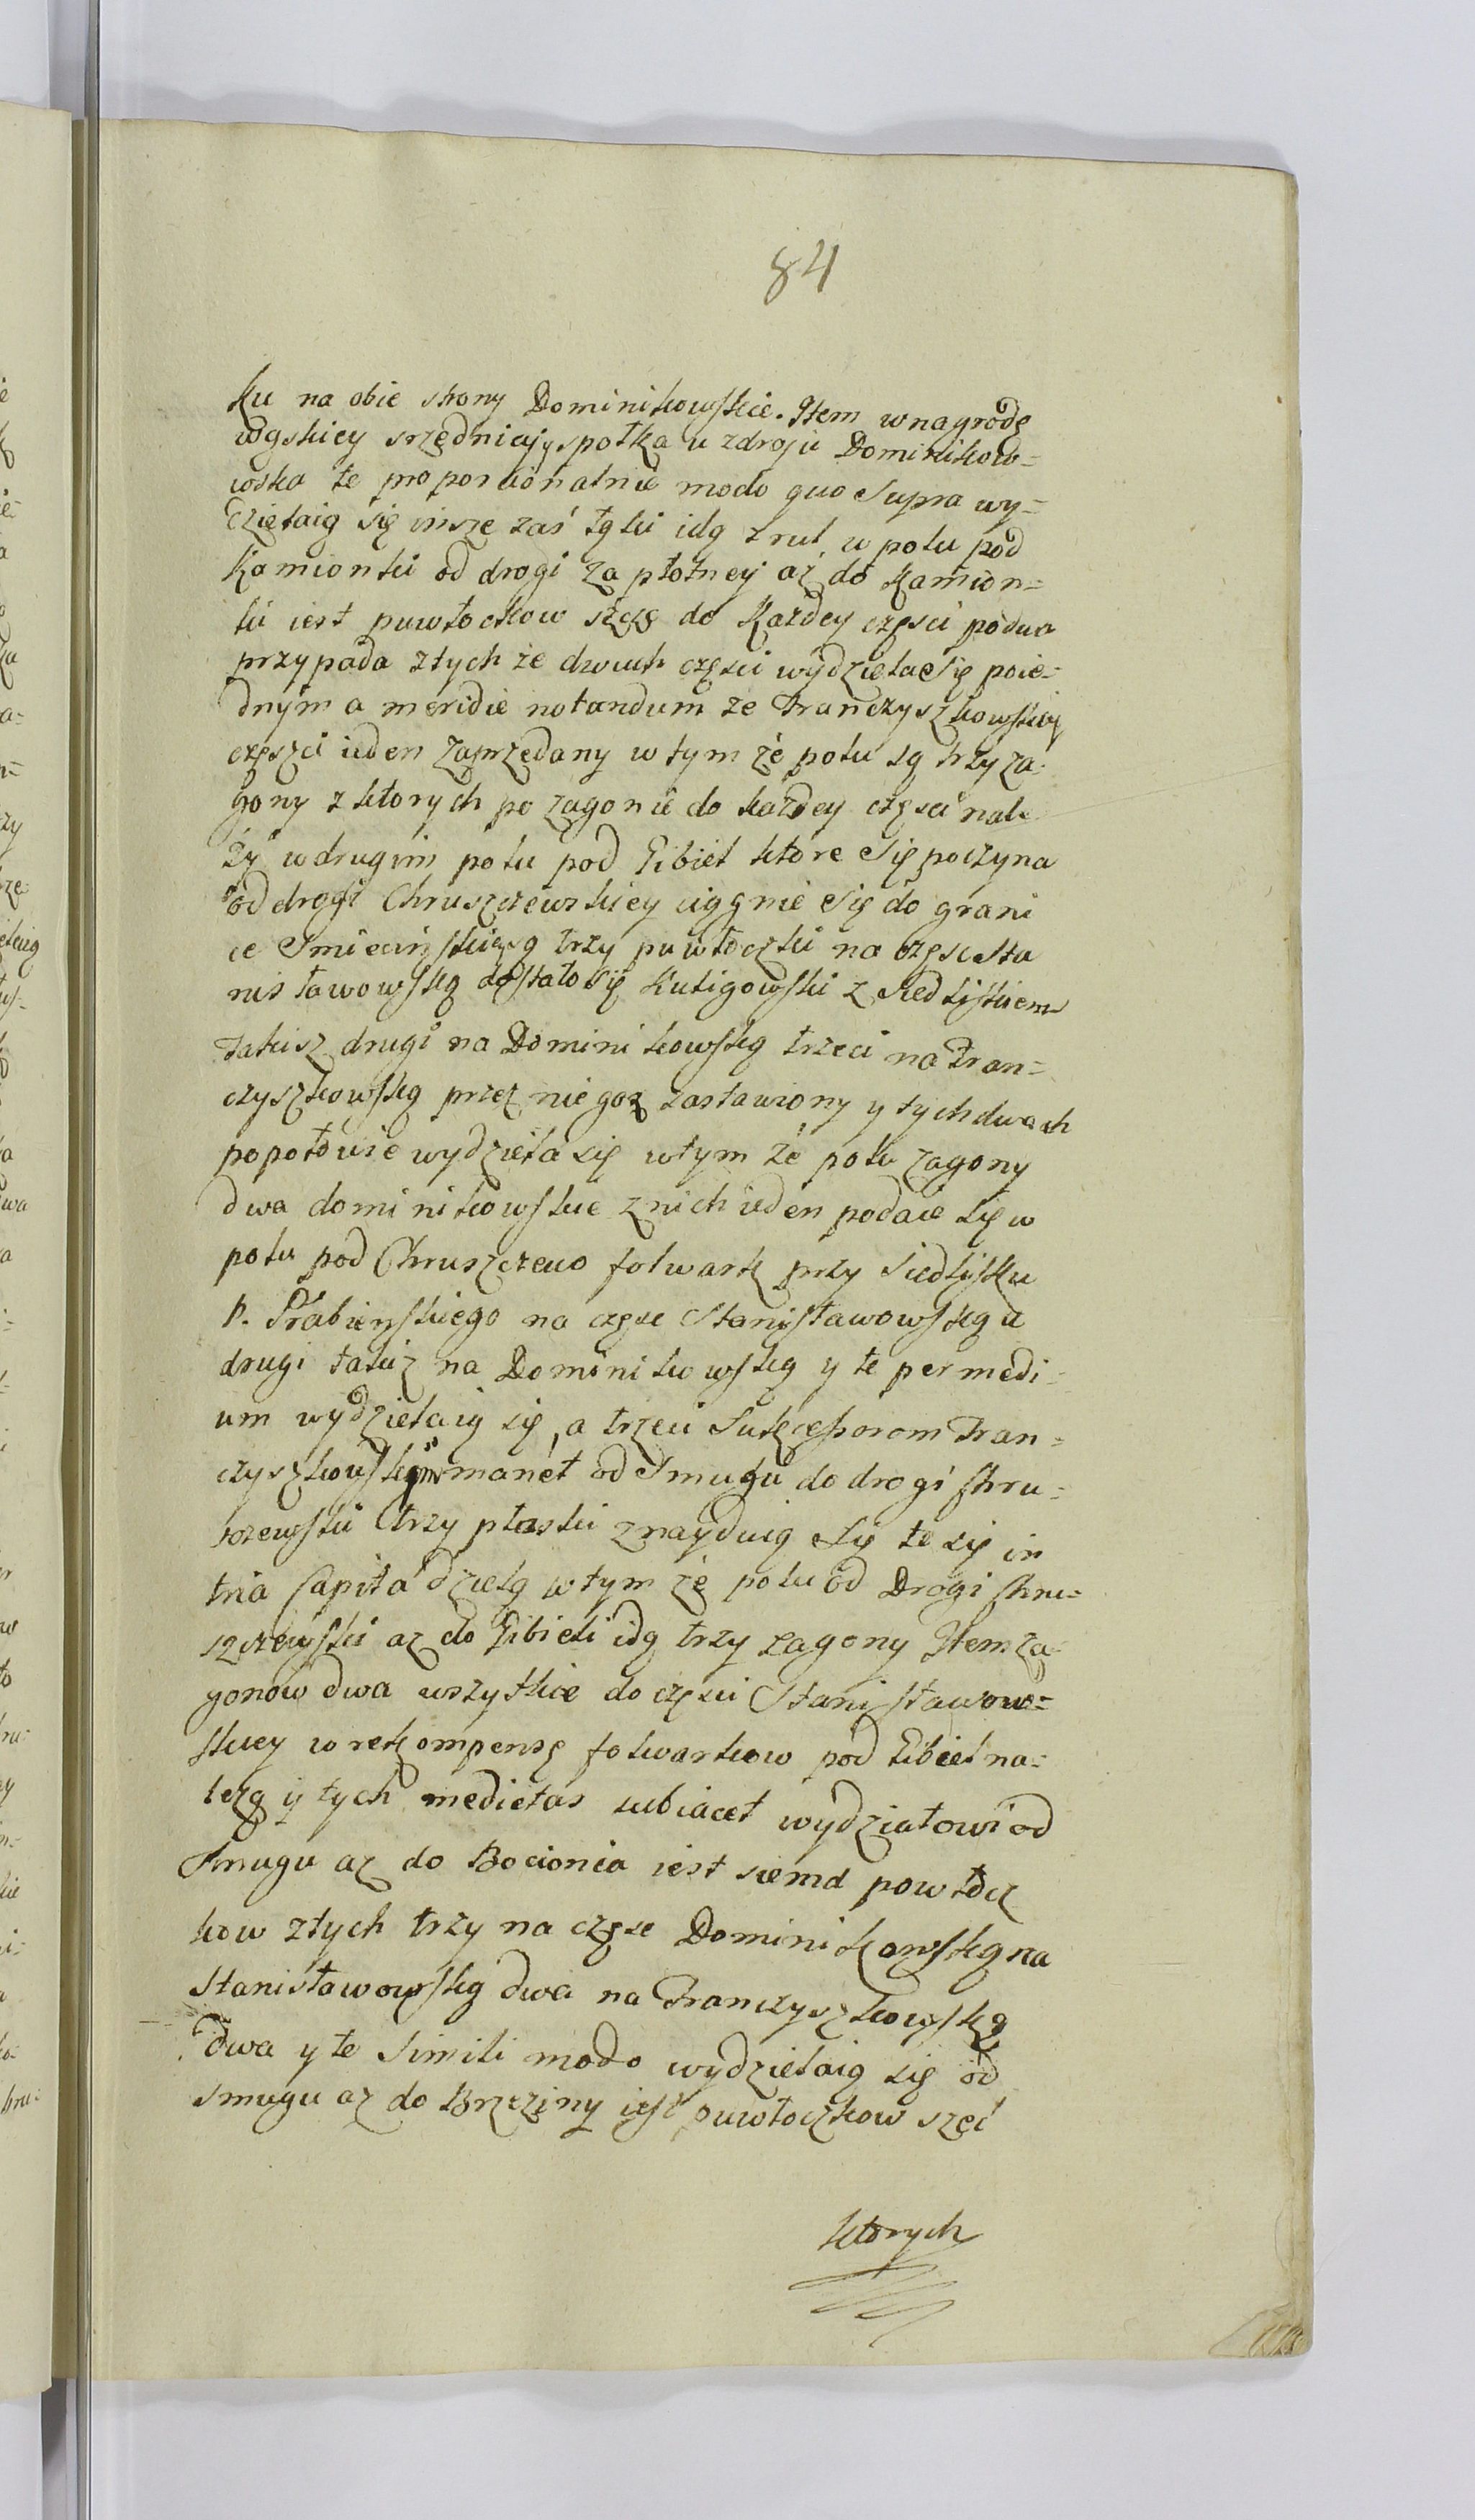 84
ku na obie strony Dominikowskie. Item w nagrodę
wąskiey srzedniey y spolka u zdroju Dominikow=
wska te proporcionalnie modo quo supra wy=
dzielaią się insze zaś tylki idą z rul w polu pod
Kamionki od drogi za płotney aż do Kamion=
ki iest puwłockow szesc do każdey częsci po dwa
przypada z tych że dwuch częsci wydziela się poie=
dnym a meridie notandum że Franczyszkowskiey
częszci ieden zaprzedany w tym że polu są trzy za=
gony z ktorych po zagonie do każdey częsci nale
ży w drugim polu pod Gibiel ktore się poczyna
od drogi Chruszczewskiey ciągnie się do grani
ce Smiecinskiey są trzy puwłoczki na częsc Sta
nisławowską dostało się Kuligowski z Siedliskiem
takisz drugi na Dominikowską trzeci na Fran=
czyszkowską przez niegoż zastawiony y tych dwoch
popołowie wydziela się w tym że polu zagony
dwa dominikowskie z nich ieden podaie się w
polu pod Chruszczewo folwark przy Siedlisku
P. Grabienskiego na częsc Stanisławowską a
drugi takiż na Dominikowską y te per medi=
um wydzielaią się, a trzeci Sukcessorom Fran=
czyszkowskim manet od Smugu do drogi Chru=
szczewski trzy płaski znayduią się te się in
tria Capita dzielą w tym że polu od Drogi Chru=
szczewski aż do Gibieli idą trzy zagony Item za=
gonow dwa wszytkie do częsci Stanisławow=
skiey w rekompensę folwarkow pod Gibiel na=
leżą y tych medietas subiacet wydziałowi od
Smugu aż do Bocionia iest siemd powłocz
kow z tych trzy na częsc Dominikowską na
Stanisławowską dwa na Franczyszkowską
dwa y te Simili modo wydzielaią się od
smugu aż do Brzeziny iest puwłoczkow szeć
ktorych